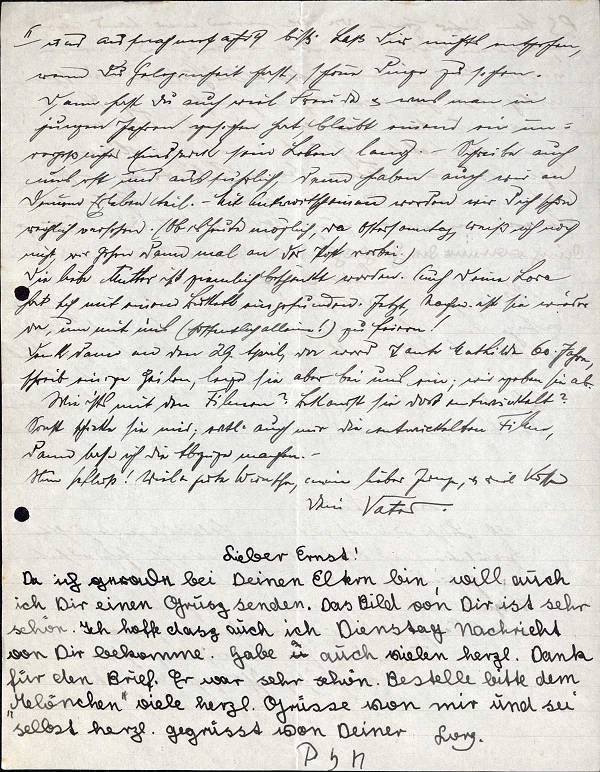 II
bist. Laß Dir nichts entgehen,
wenn Du Gelegenheit hast, schöne Dinge zu sehen.
Dann hast Du auch viel Freude & was man in
jungen Jahren gesehen hat, bleibt einem ein un-
sein Leben lang. - Schreibe auch
und oft und ausführlich, dann haben auch wir an
Deinem Erleben teil. - Mit werden wir Dich schon
versehen. Ob heute möglich, da Ostersamstag, weiß ich noch
nicht, wir gehen dann mal an der Post vorbei!
Die liebe Mutter ist ziemlich beschenkt worden. Auch Deine Lore
hat sich mit einem eingefunden. Jetzt, ist sie wieder
da, um mit uns (hoffentlich allein!) zu feiern!
Denk dann an den 29. April, da wird Tante Mathilde 60 Jahre,
schreib einige Zeilen, lege sie aber bei uns ein; wir geben sie ab.
Wie ist's mit den Filmen? Bekommst sie dort entwickelt?
Sonst schicke sie mir, evtl. auch nur die entwickelten Filme,
dann lasse ich die Abzüge machen. -
Nun Schluß! Viele gute Wünsche, mein lieber Junge, & viel
Dein Vater.
Lieber Ernst!
Da ich gerade bei Deinen Eltern bin, will auch
ich Dir einen Grusz senden. Das Bild von Dir ist sehr
schön. Ich hoffe dasz auch ich Dienstag Nachricht
von Dir bekomme. Habe auch vielen herzl. Dank
für den Brief. Er war sehr schön. Bestelle bitte dem
"Melönchen" viele herzl. Grüsse von mir und sei
selbst herzl. gegrüsst von Deiner